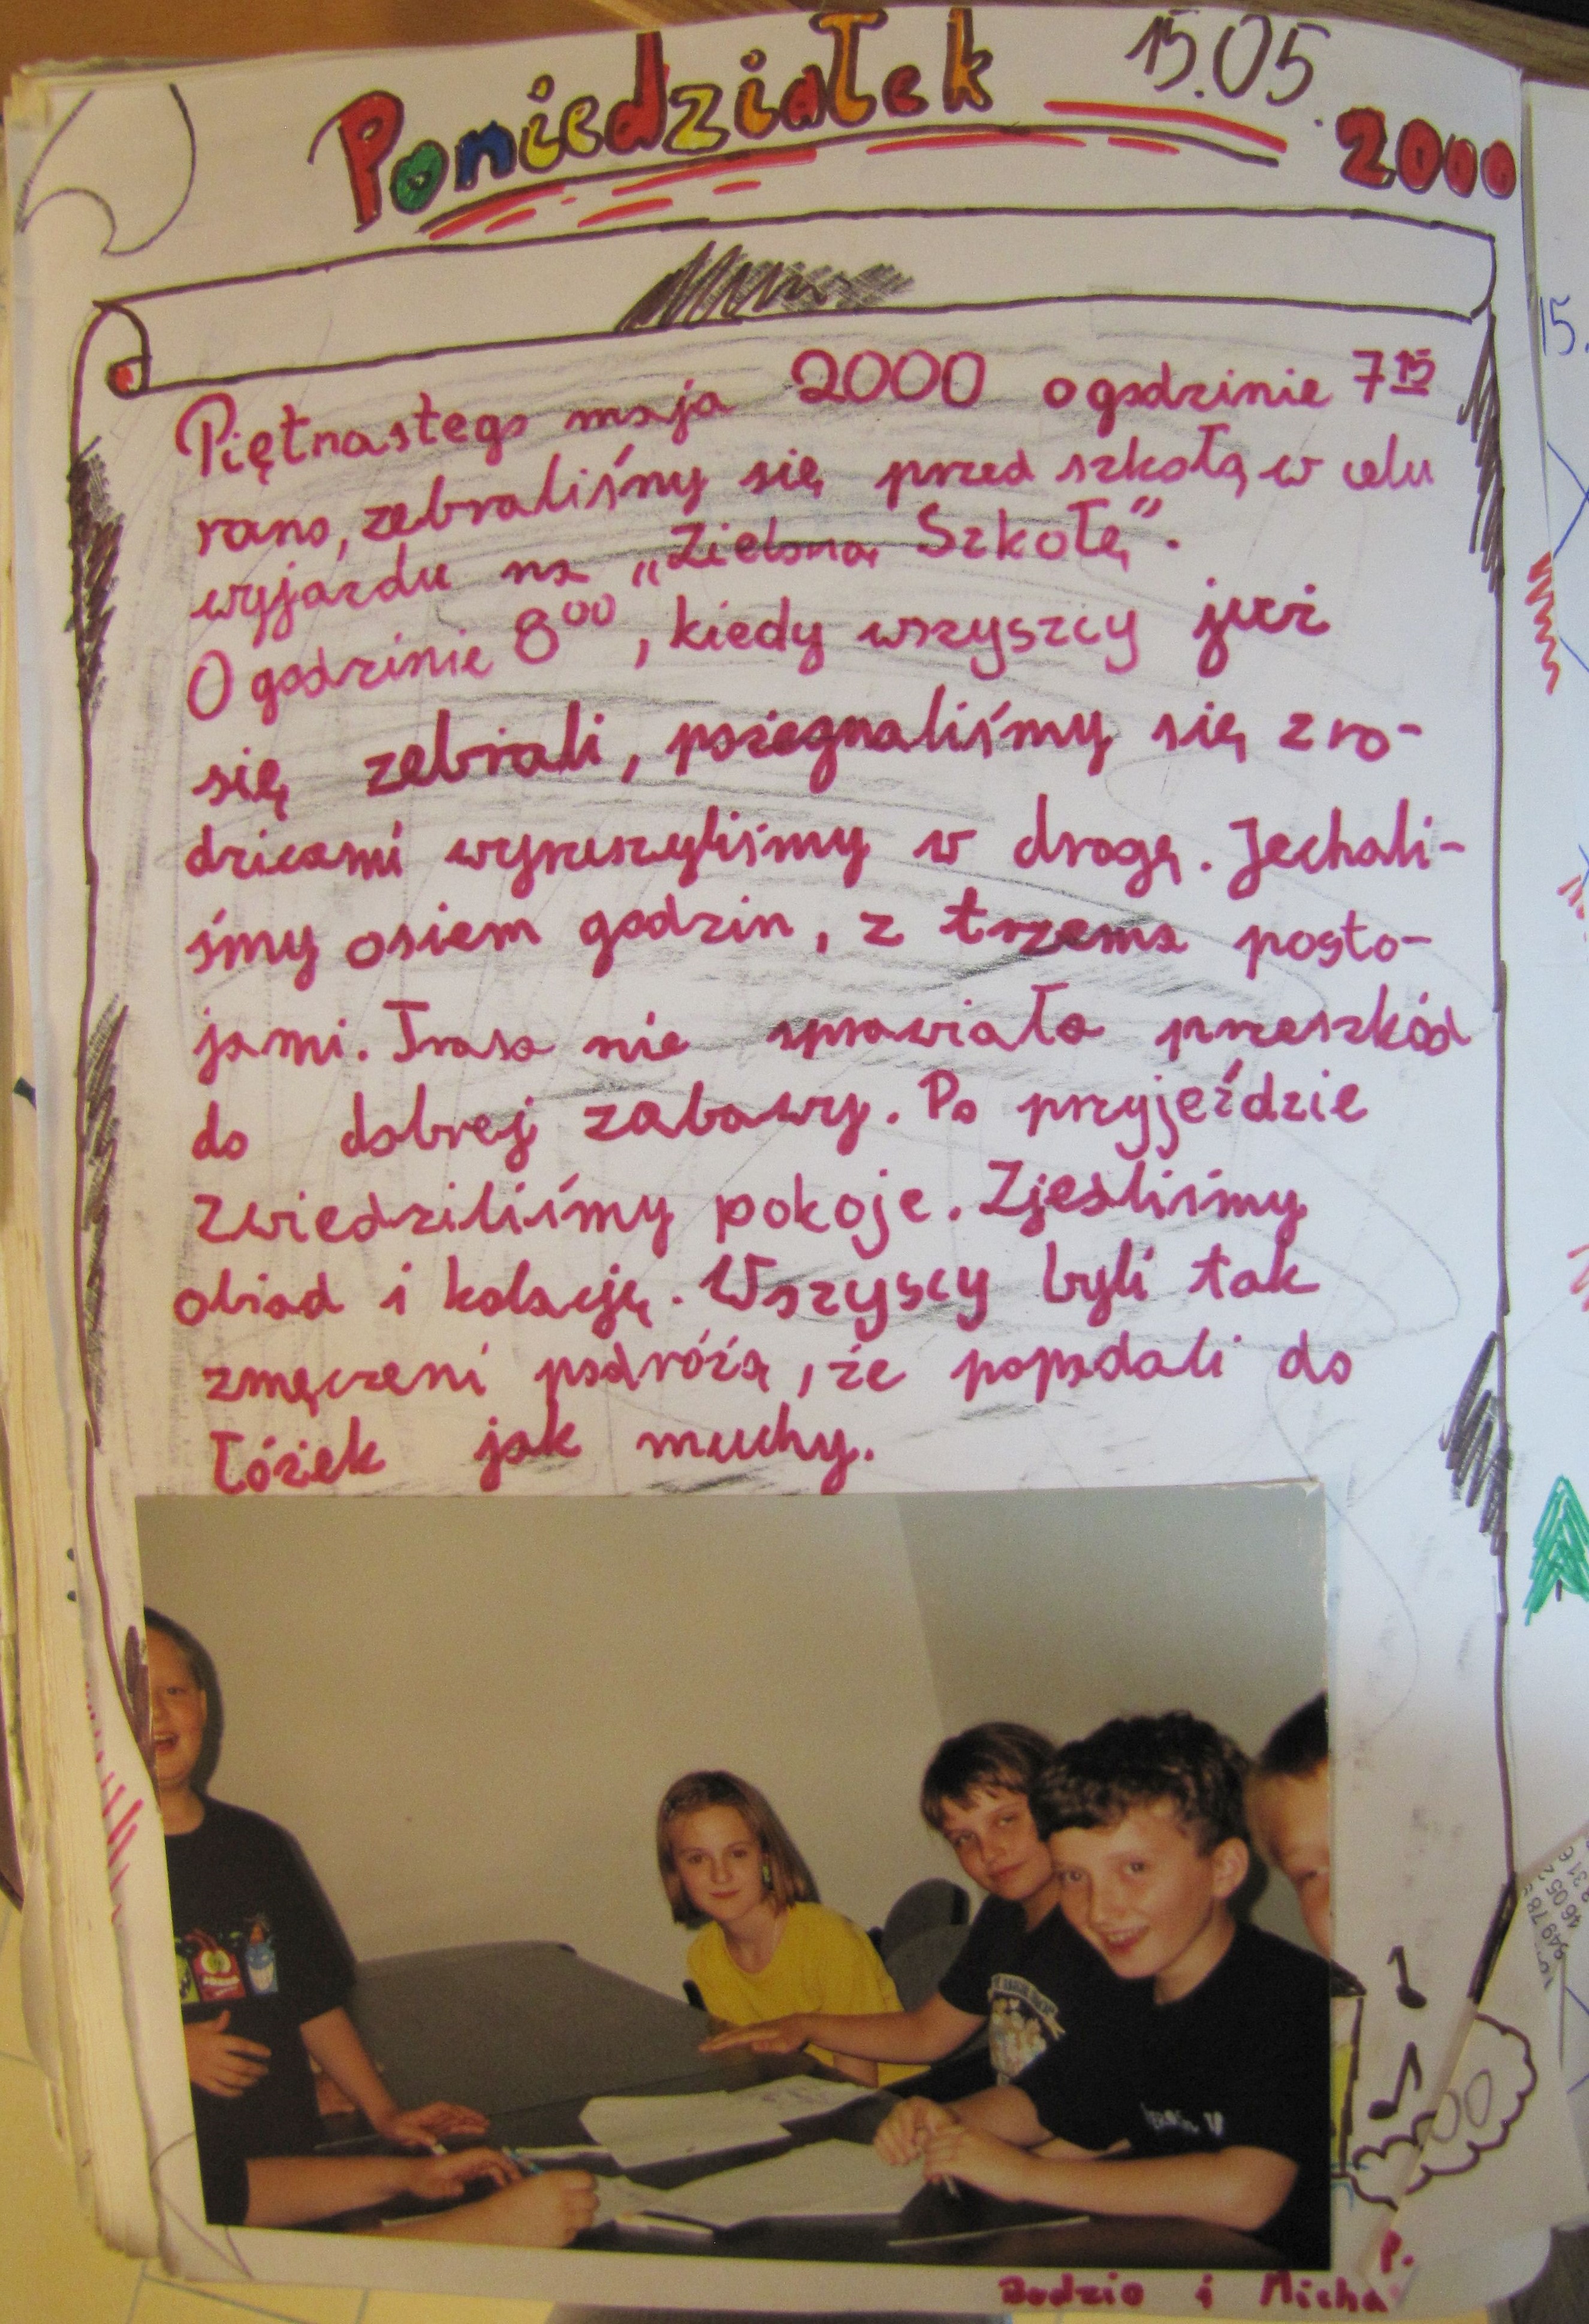 Poniedziałek 15.05.2000
Piętnastego maja 2000 o godzinie 7¹⁵
rano, zebraliśmy się przed szkołą w celu
wyjazdu na „Zieloną Szkołę”.
O godzinie 8⁰⁰, kiedy wszyszcy już
się zebrali, pożegnaliśmy się z ro-
dzicami wyruszyliśmy w drogę. Jechali-
śmy osiem godzin, z trzema posto-
jami. Trasa nie sprawiała przeszkód
do dobrej zabawy. Po przyjeździe
zwiedziliśmy pokoje. Zjedliśmy
obiad i kolację. Wszyscy byli tak
zmęczeni podróżą, że popadali do
łóżek jak muchy.
15.
P.
i Micha